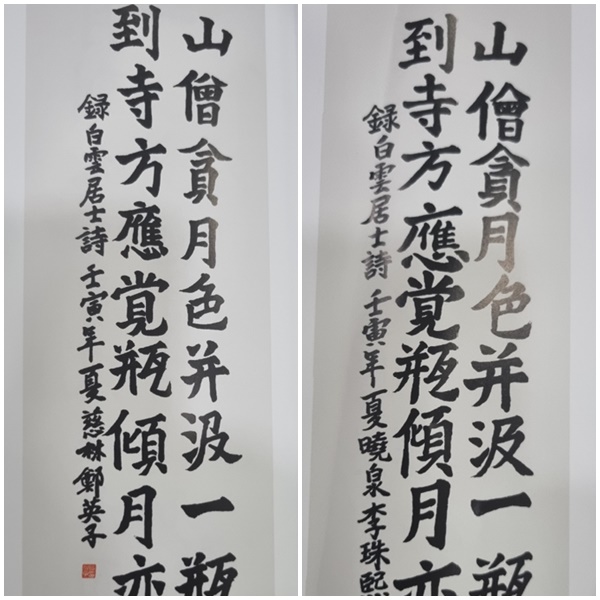 山僧貪月色并汲一瓶
到寺方應覚瓶傾月亦
録白雲居士詩 壬寅年夏 慈林 鄭英子
山僧貪月色并汲一瓶
到寺方應覚瓶傾月亦
録白雲居士詩 壬寅年夏 曉泉 李珠熙